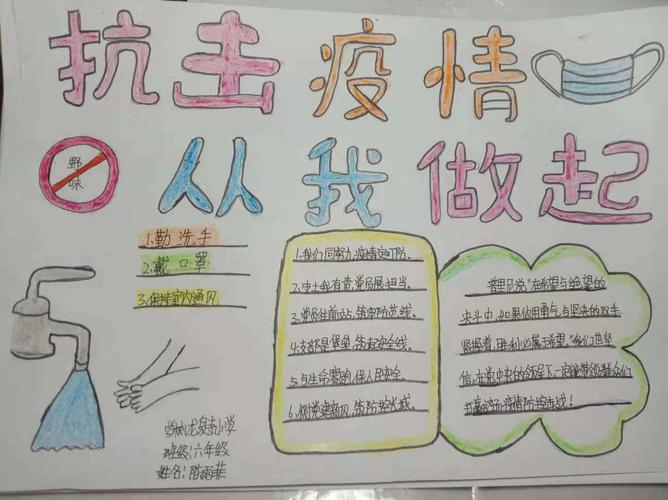 抗击疫情
从从我做起
野味
1.勤洗手
2.戴口罩
3.保持室内通风
1.我们同努力,疫情定可防。
2.守土我有责,党员展担当。
3.党员往前站,筑牢防范线。
4.支部是堡垒,筑起安全线。
5.与生命赛跑,保人民安全。
6.树党建新风,筑防控长城。
普里尼说"在希望与绝望的
决斗中,如果你用勇气与坚决的双手
紧握着,胜利必属于希望"我们也坚
信,在党中央的领导下一定能带领群众们
打赢这场疫情防控走战!
学校:龙泉东小学
班级:六年级
姓名:陈雨菲